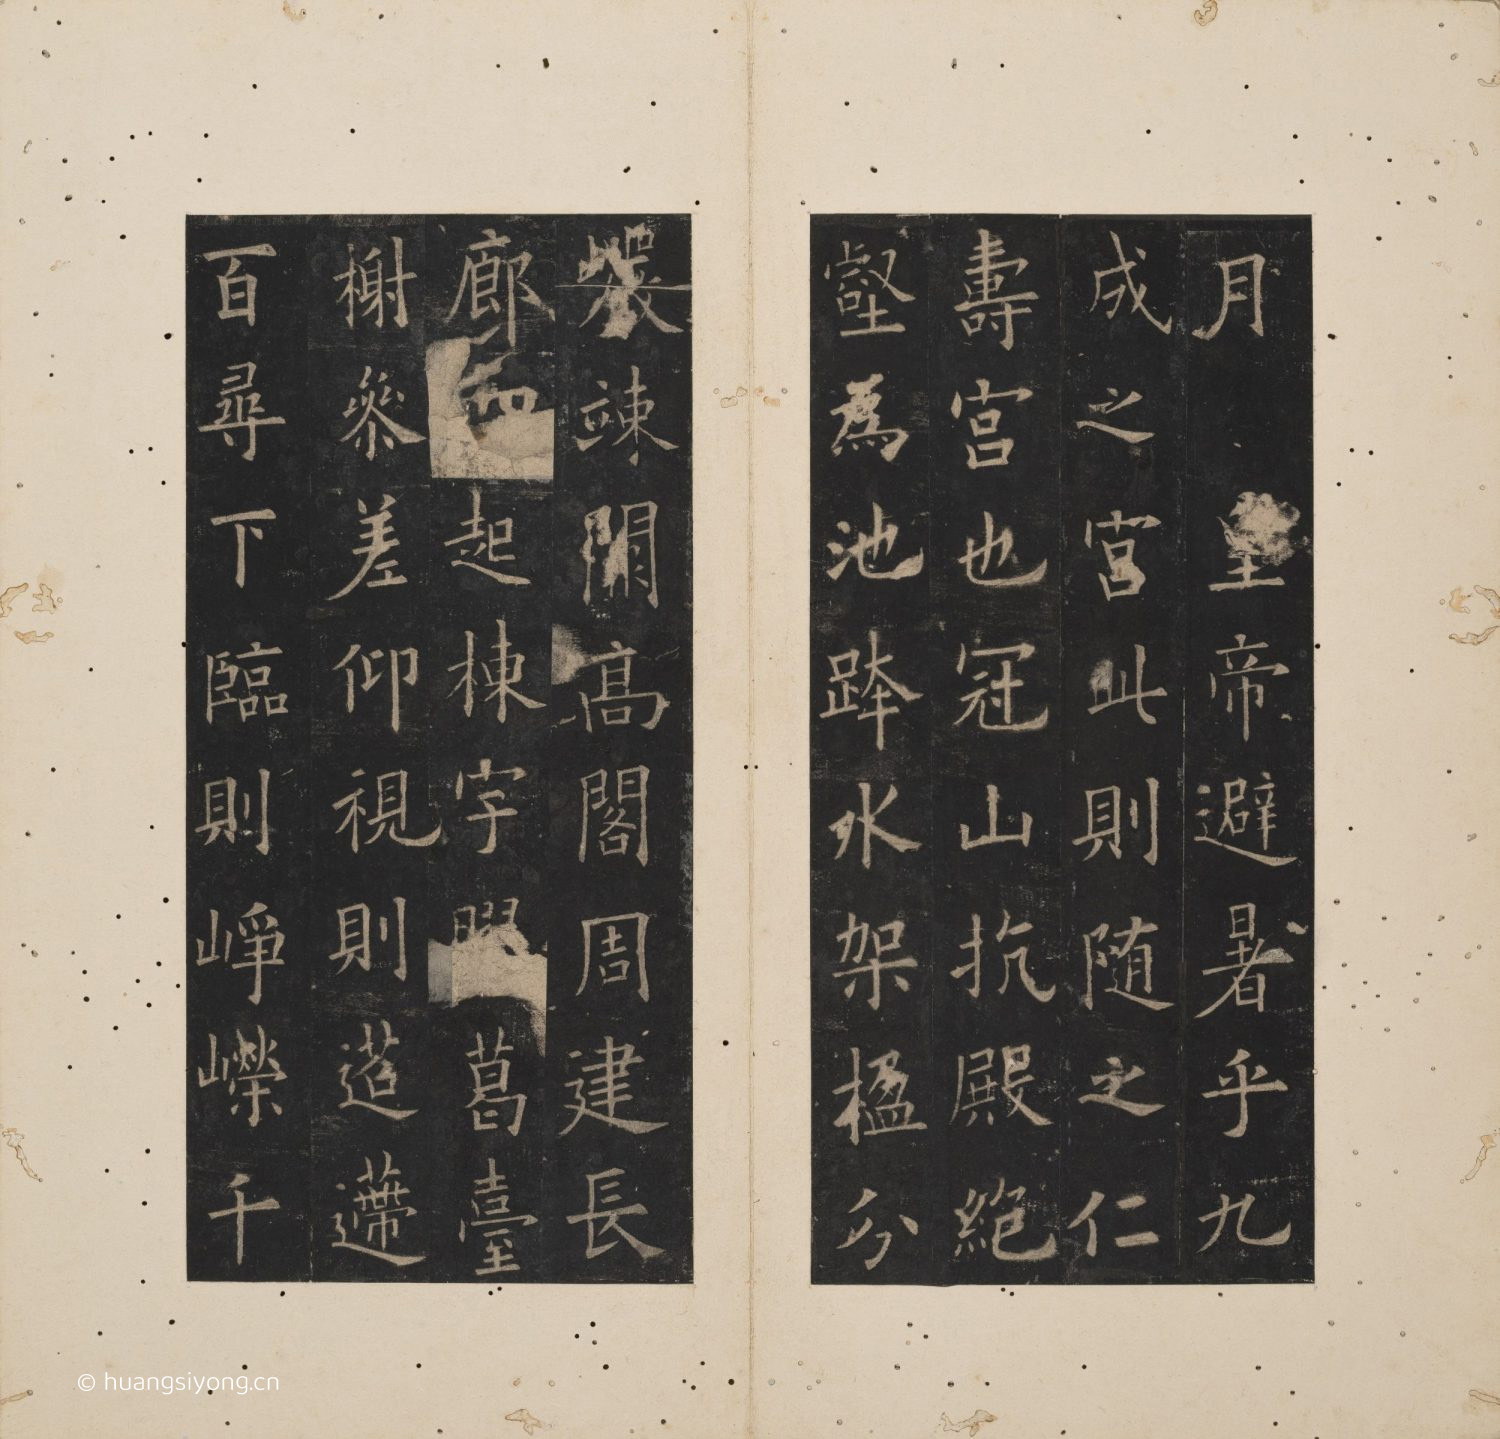 月皇帝避暑乎九
成之宫此則随之仁
壽宫也冠山抗殿絶
壑為池跨水架楹分
巖竦闕高閣周建長
廊四起棟宇膠葛臺
榭參差仰視則迢遰
百尋下臨則崢嶸千
© huangsiyong.cn